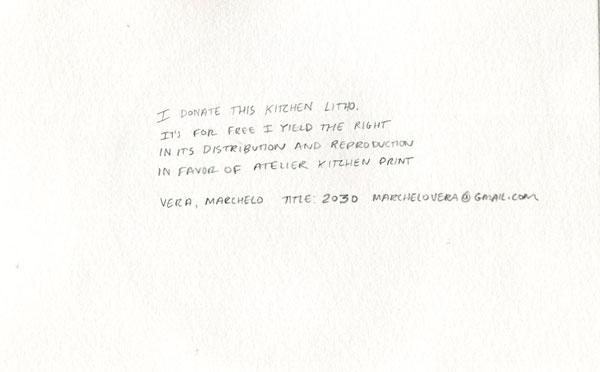 I DONATE THIS KITCHEN LITHO.
IT'S FOR FREE I YIELD THE RIGHT
IN ITS DISTRIBUTION AND REPRODUCTION
IN FAVOR OF ATELIER KITCHEN PRINT
VERA, MARCHELO TITLE: 2030 MARCHELOVERA@GMAIL.COM